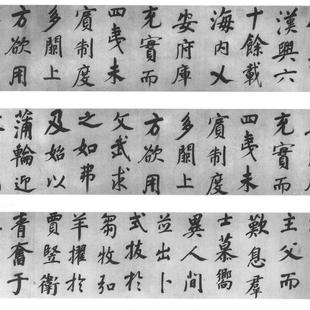 漢興六
十餘載
海內乂
安府庫
充實而
四夷未
賓制度
多闕上
方欲用
充實而
四夷未
賓制度
多闕上
方欲用
文武求
之如弗
及始以
蒲輪迎
主父而
歎息羣
士慕嚮
異人間
並出卜
式拔於
芻牧弘
羊擢於
賈豎衛
青奮于